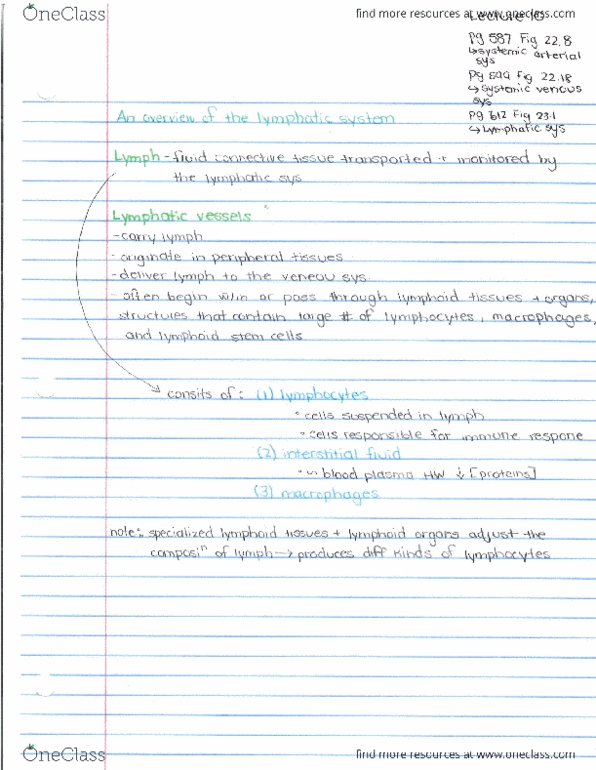 OneClass
find more resources at www.oneclass.com
pg 587 Fig 22.8
↳systemic arterial
sys
Fig 22.18
↳ systemic venous
sys
Fig 23.1
↳ Lymphatic sys
An overview of the lymphatic system
Lymph - fluid connective tissue transported + monitored by
the lymphatic sys
Lymphatic vessels
- carry lymph
- originate in peripheral tissues
- deliver lymph to the veneou sys
- often begin w/in or pass through lymphoid tissues + organs,
structures that contain large # of lymphocytes, macrophages,
and lymphoid stem cells
→ consits of: (1) lymphocytes
• cells suspended in lymph
• cells responsible for immune respone
(2) interstitial fluid
• blood plasma HW ↓ [proteins]
(3) macrophages
note: specialized lymphoid tissues + lymphoid organs adjust the
composiⁿ of lymph → produces diff kinds of lymphocytes
OneClass
find more resources at www.oneclass.com